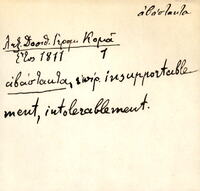 ἀβάσταχτα
Λεξ. Δοσιθ. Γεραμ. Κομᾶ
Ἔτος 1811 1
ἀβάσταχτα, ἐπίρ. insupportable
ment, intolerablement.